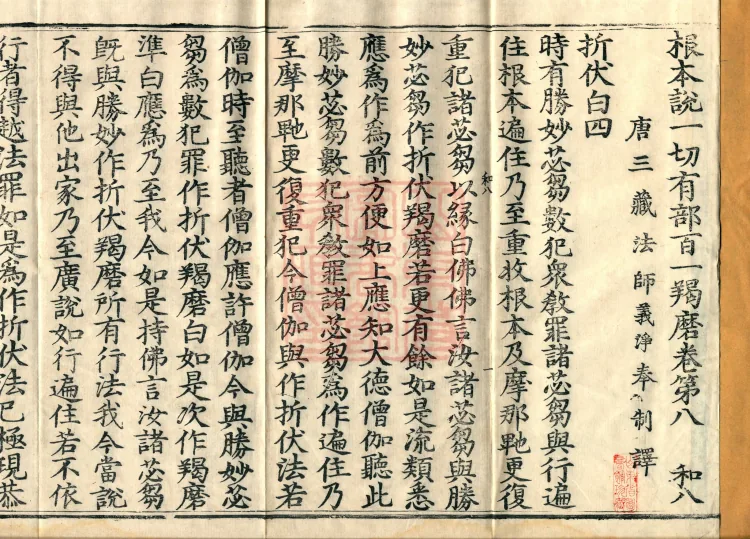 根本說一切有部百一羯磨卷第八 和八
唐三藏法師義淨奉 制譯
折伏白四
時有勝妙苾芻數犯衆敎罪諸苾芻與行遍
住根本遍住乃至重收根本及摩那卑更復
重犯諸苾芻以緣白佛佛言汝諸苾芻與勝
和八
妙苾芻作折伏羯磨若更有餘如是流類悉
應爲作爲前方便如上應知大德僧伽聽此
勝妙苾芻數犯衆敎罪諸苾芻爲作遍住乃
至摩那卑更復重犯今僧伽與作折伏法若
僧伽時至聽者僧伽應許僧伽今與勝妙苾
芻爲數犯罪作折伏羯磨白如是次作羯磨
準白應爲乃至我今如是持佛言汝諸苾芻
旣與勝妙作折伏羯磨所有行法我今當說
不得與他出家乃至廣說如行遍住若不依
行者得越法罪如是爲作折伏法已極現恭